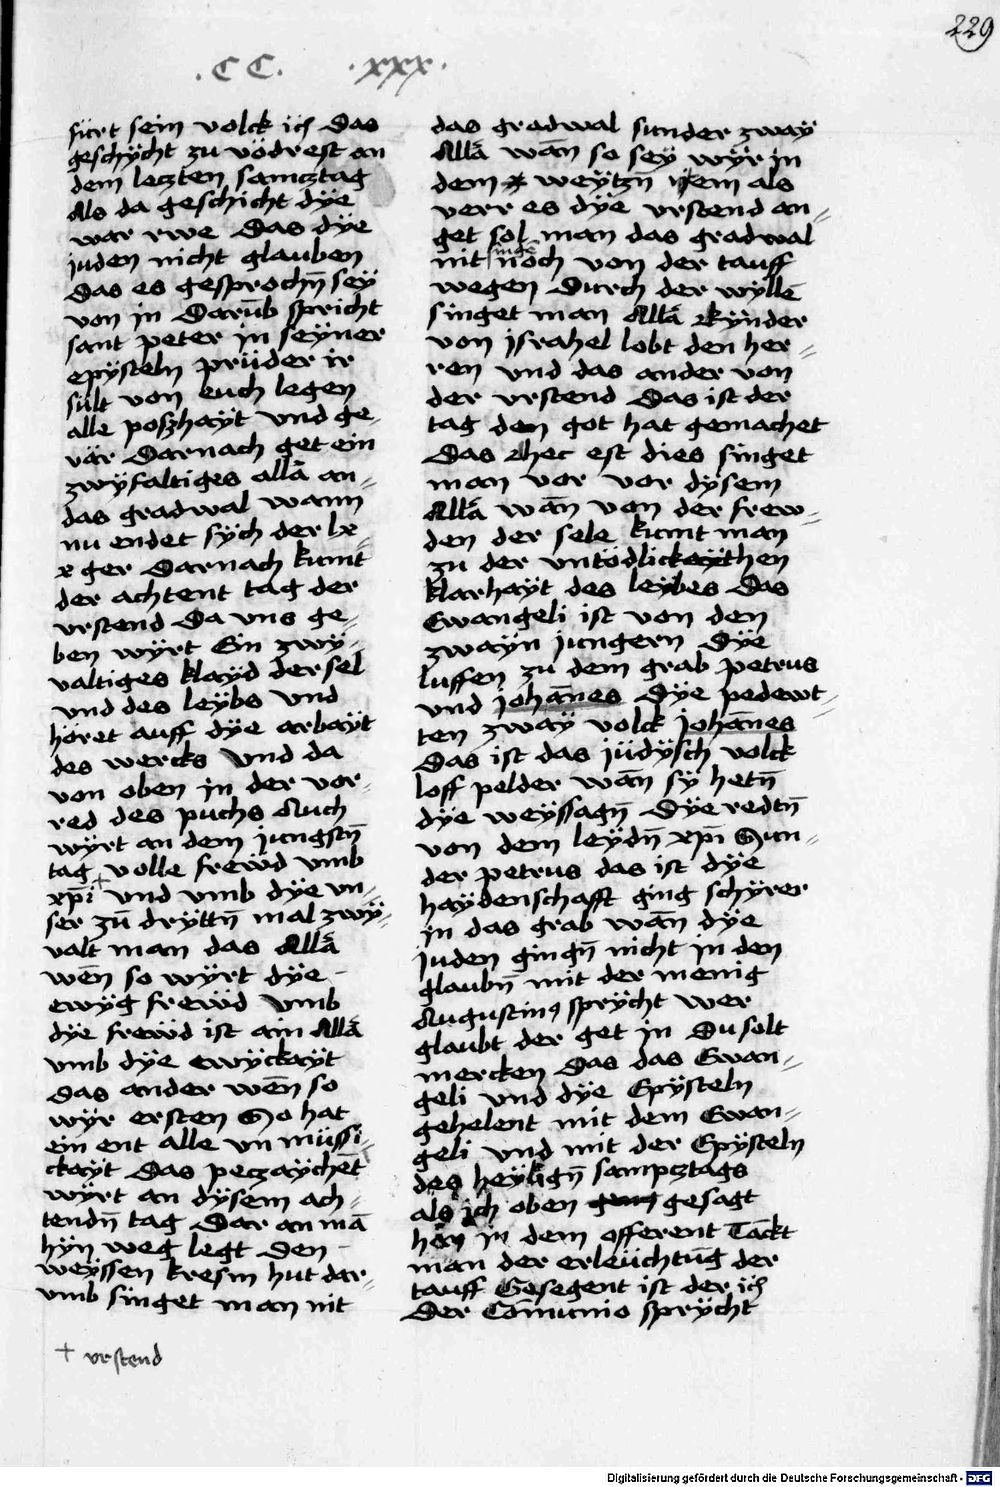 229
.CC. .xxx.
fürt sein volck ich Das
geschÿcht zu vödrest an
dem leczten samcztag
Als da geschicht dÿe
war rwe Das dÿe
juden nicht glauben
Das es gesprochn̄ seÿ
von in Darūb spricht
sant peter in seÿner
epÿsteln prüder ir
sült von euch legen
alle poszhaÿt vnd ge-
vär Darnach get ein
zwÿfaltiges allā an-
das gradwal wann
nu endet sÿch der lx-
x ger Darnach kumt
der achtent tag der
vrstend Da vns ge-
ben wÿrt Ein zwÿ-
valtiges klaÿd der sel
vnd des leÿbs vnd
höret auff dÿe arbaÿt
des wercks vnd da
von oben in der vor-
red des puchs Auch
wÿrt an dem jungstn̄
tag volle frewd vmb
xp̄i + vnd vmb dÿe vn-
ser zū drÿttn̄ mal zwÿ-
valt man das Allā
wēn so wÿrt dÿe -
ewÿg frewd vmb
dÿe frewd ist ain Allā
vmb dÿe ewÿckaÿt
das ander wēn so
wÿr ersten So hat
ein ent alle vn müssi-
ckaÿt Das peczaÿchēt
wÿrt an dÿsem ach-
tendn̄ tag Dar an mā
hÿn weg legt Den -
weÿssen kresm hut dar-
vmb singet man nit
+ vrstend
das gradwal sunder zwaÿ
Allā wān so seÿ wÿr in
dem weÿtzn̄ item als
verr es dÿe vrstend an-
get sol man das gradwal
nit singē noch von der tauff
wegen Durch der wÿllē
singet man Allā Kÿnder
von jsrahel lobt den her-
ren vnd das ander von
der vrstend Das ist der
tag den got hat gemachet
Das Hec est dies singet
man vor vor dÿsem
Allā wān von der frew-
den der sele kumt man
zu der vntödlickaÿthen
klarhaÿt des leÿbes Das
Ewangeli ist von den
zwaÿn jungern Dÿe
luffen zu dem grab petrus
vnd johān̄es Dÿe pedewt-
ten zwaÿ volck johān̄es
Das ist das jüdÿsch volck
loff pelder wān sÿ hetn̄
dÿe weÿssagn̄ Dÿe redtn̄
von dem leÿdn̄ xp̄i Sun-
der petrus das ist dÿe
haÿdenschafft ging schÿrer
in das grab wān dÿe
juden gingn̄ nicht in den
glaubn̄ mit der menig
Augustinꝰ sprÿcht wer
glaubt der get in Du solt
mercken Das das Ewan-
geli vnd dÿe Epÿsteln
gehelent mit dem Ewan-
geli vnd mit der Epÿsteln
des heÿlign̄ sampcztags
als ich oben gesagt
hān in dem offerent Tackt
man der erleüchtūg der
tauff Gesegent ist der ich
Der Cōmunio sprÿcht
Digitalisierung gefördert durch die Deutsche Forschungsgemeinschaft - DFG